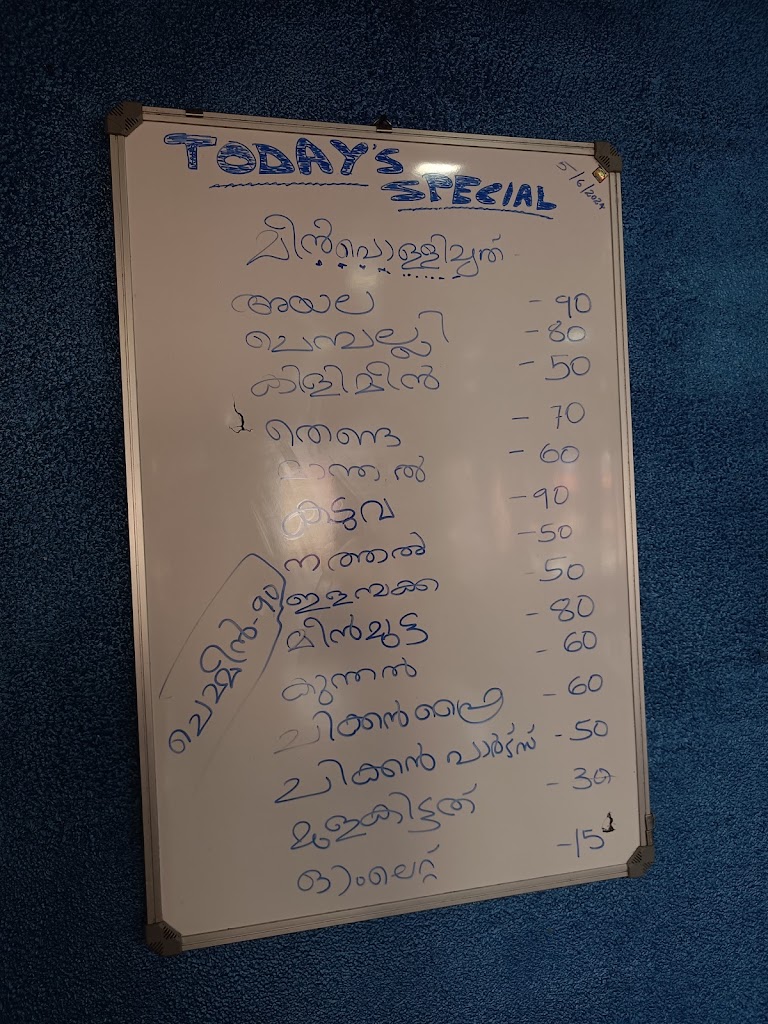 TODAY'S
SPECIAL
5/6/2024
മീൻപൊള്ളിച്ചത്
അയല - 90
ചെമ്പല്ലി - 80
കിളിമീൻ - 50
തെണ്ട - 70
മാന്തൽ - 60
കടുവ - 90
നത്തൽ - 50
ഇളമ്പക്ക - 50
മീൻമുട്ട - 80
കുന്തൽ - 60
ചിക്കൻ ഫ്രൈ - 60
ചിക്കൻ പാർട്സ് - 50
മുളകിട്ടത് - 30
ഓംലെറ്റ് - 15
ചെമ്മീൻ - 90